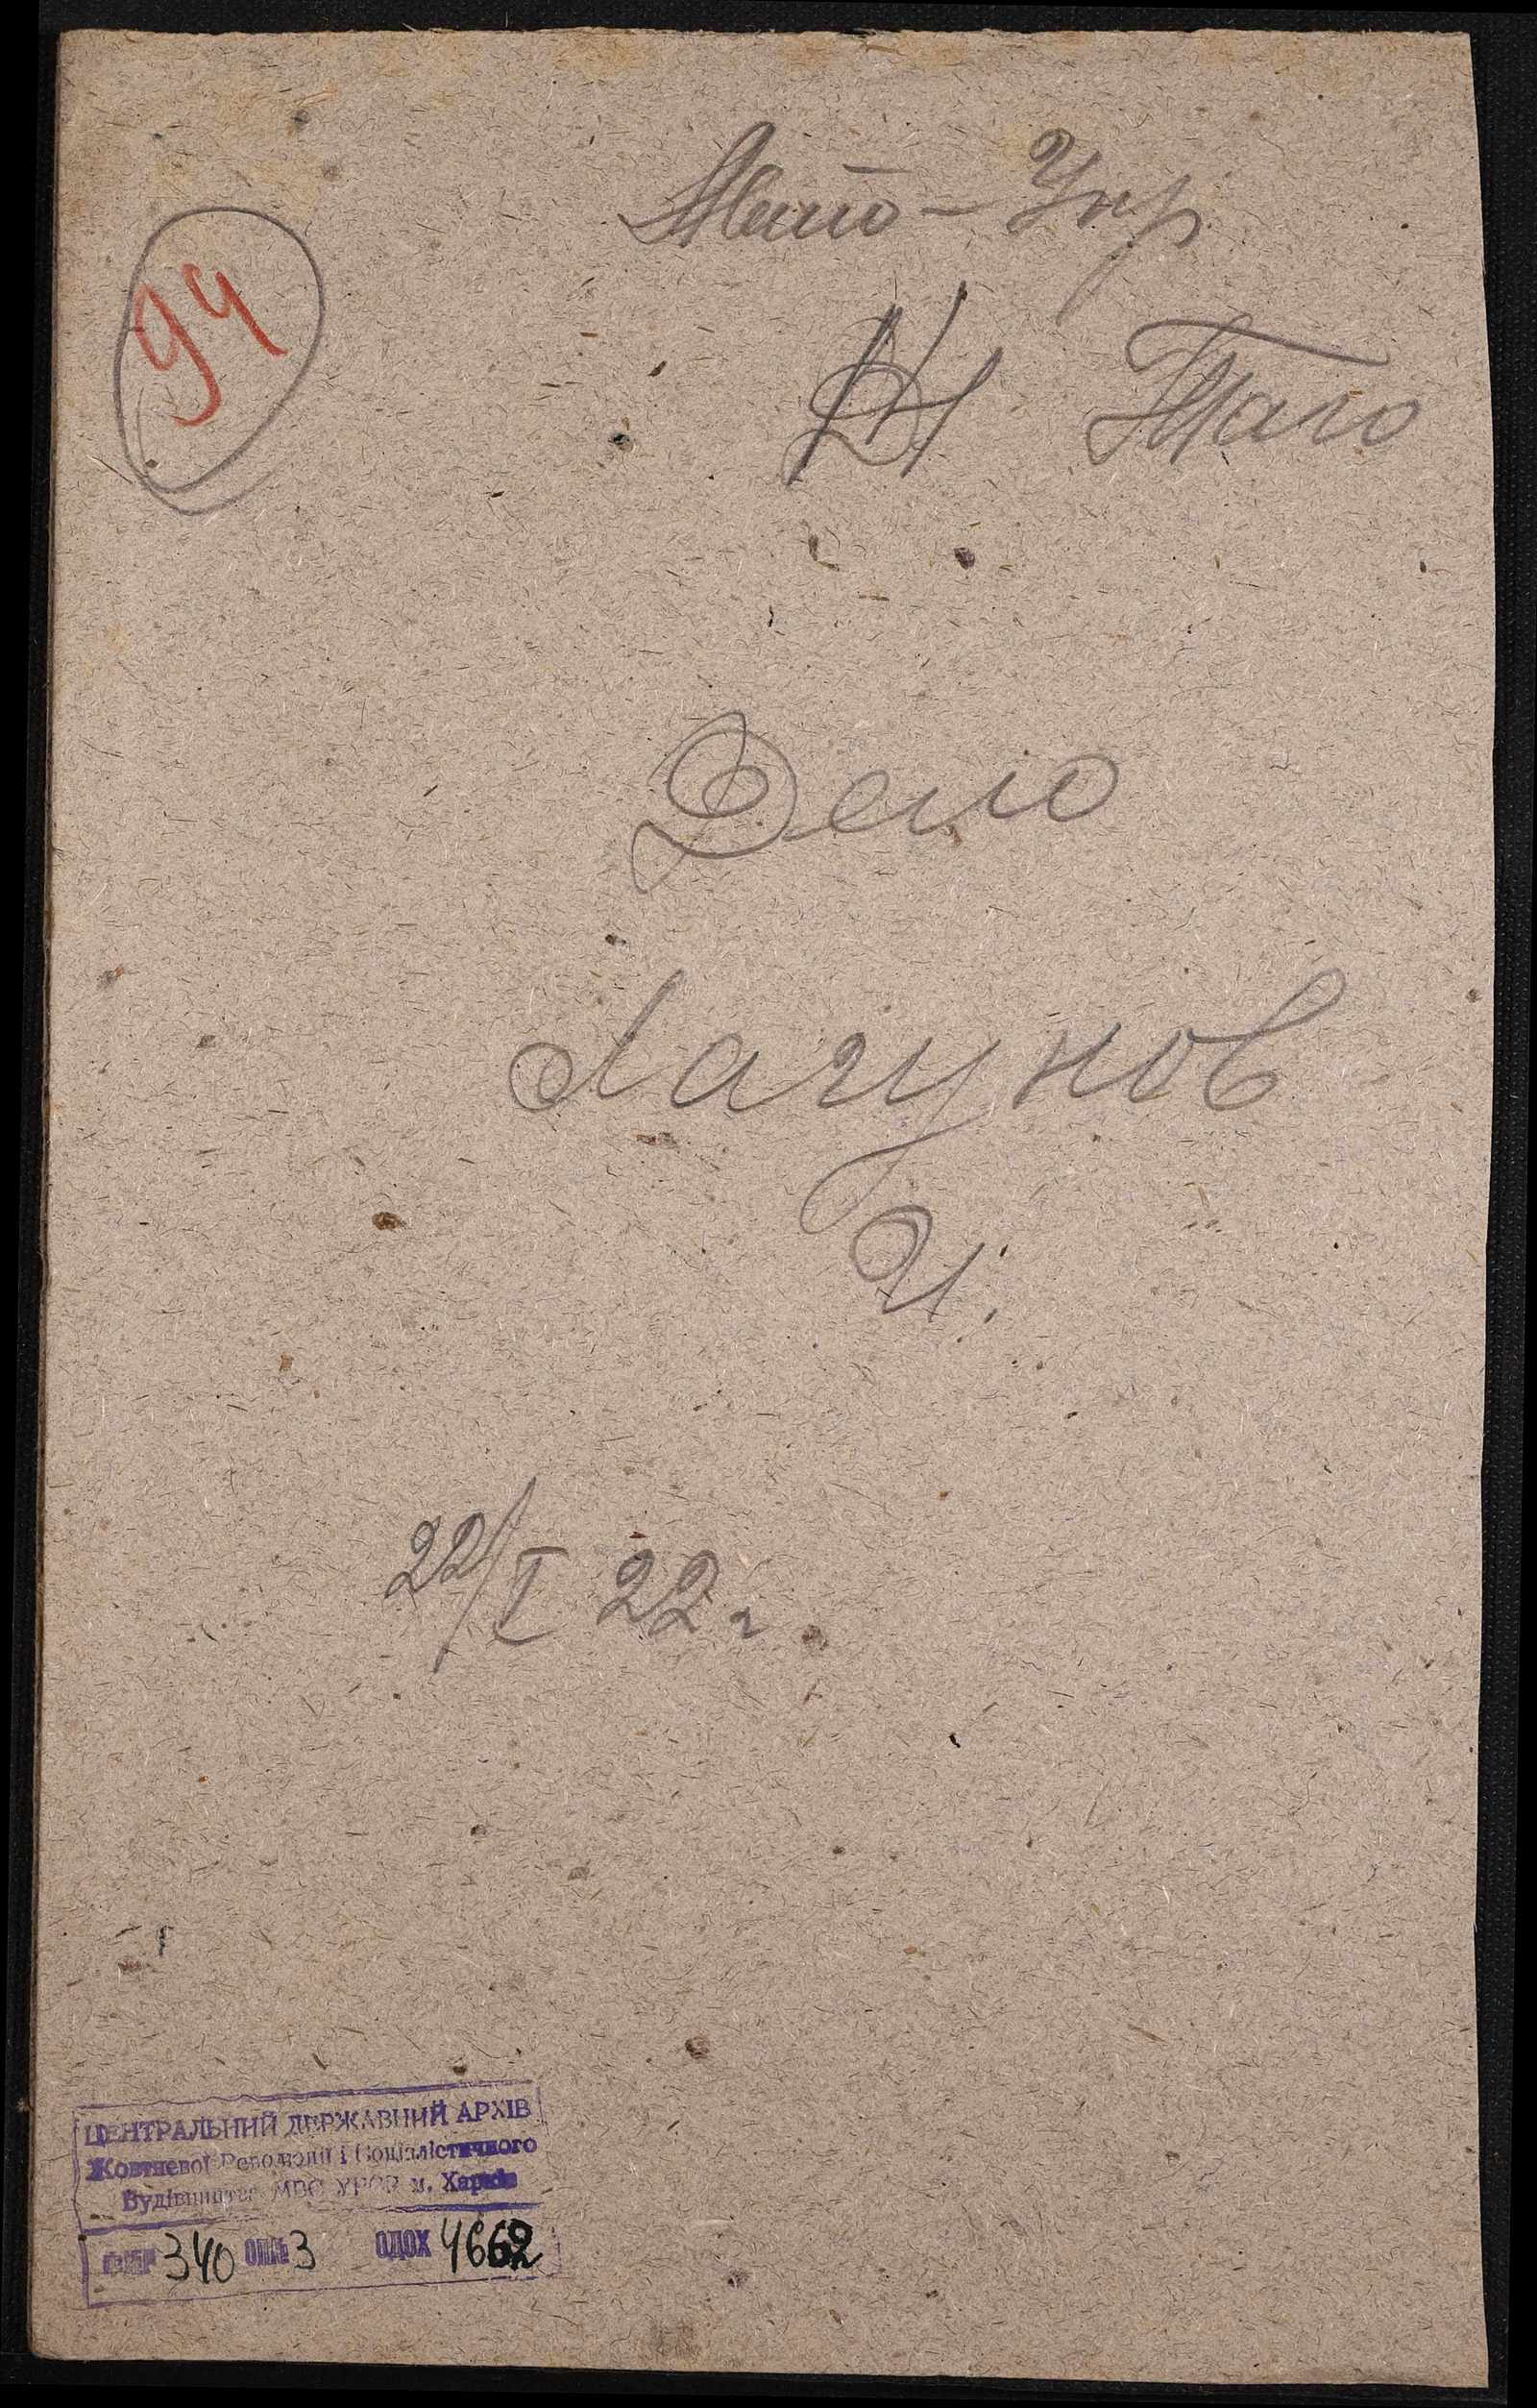 94
Мапо - Укр
Таго
Дело
Лагунов
И.
22/I 22 г.
ЦЕНТРАЛЬНИЙ ДЕРЖАВНИЙ АРХІВ
Жовтневої Революції і Соціалістичного
Будівництва МВС УРСР м. Харків
340 ОП№ 3 ОДОХ 4662